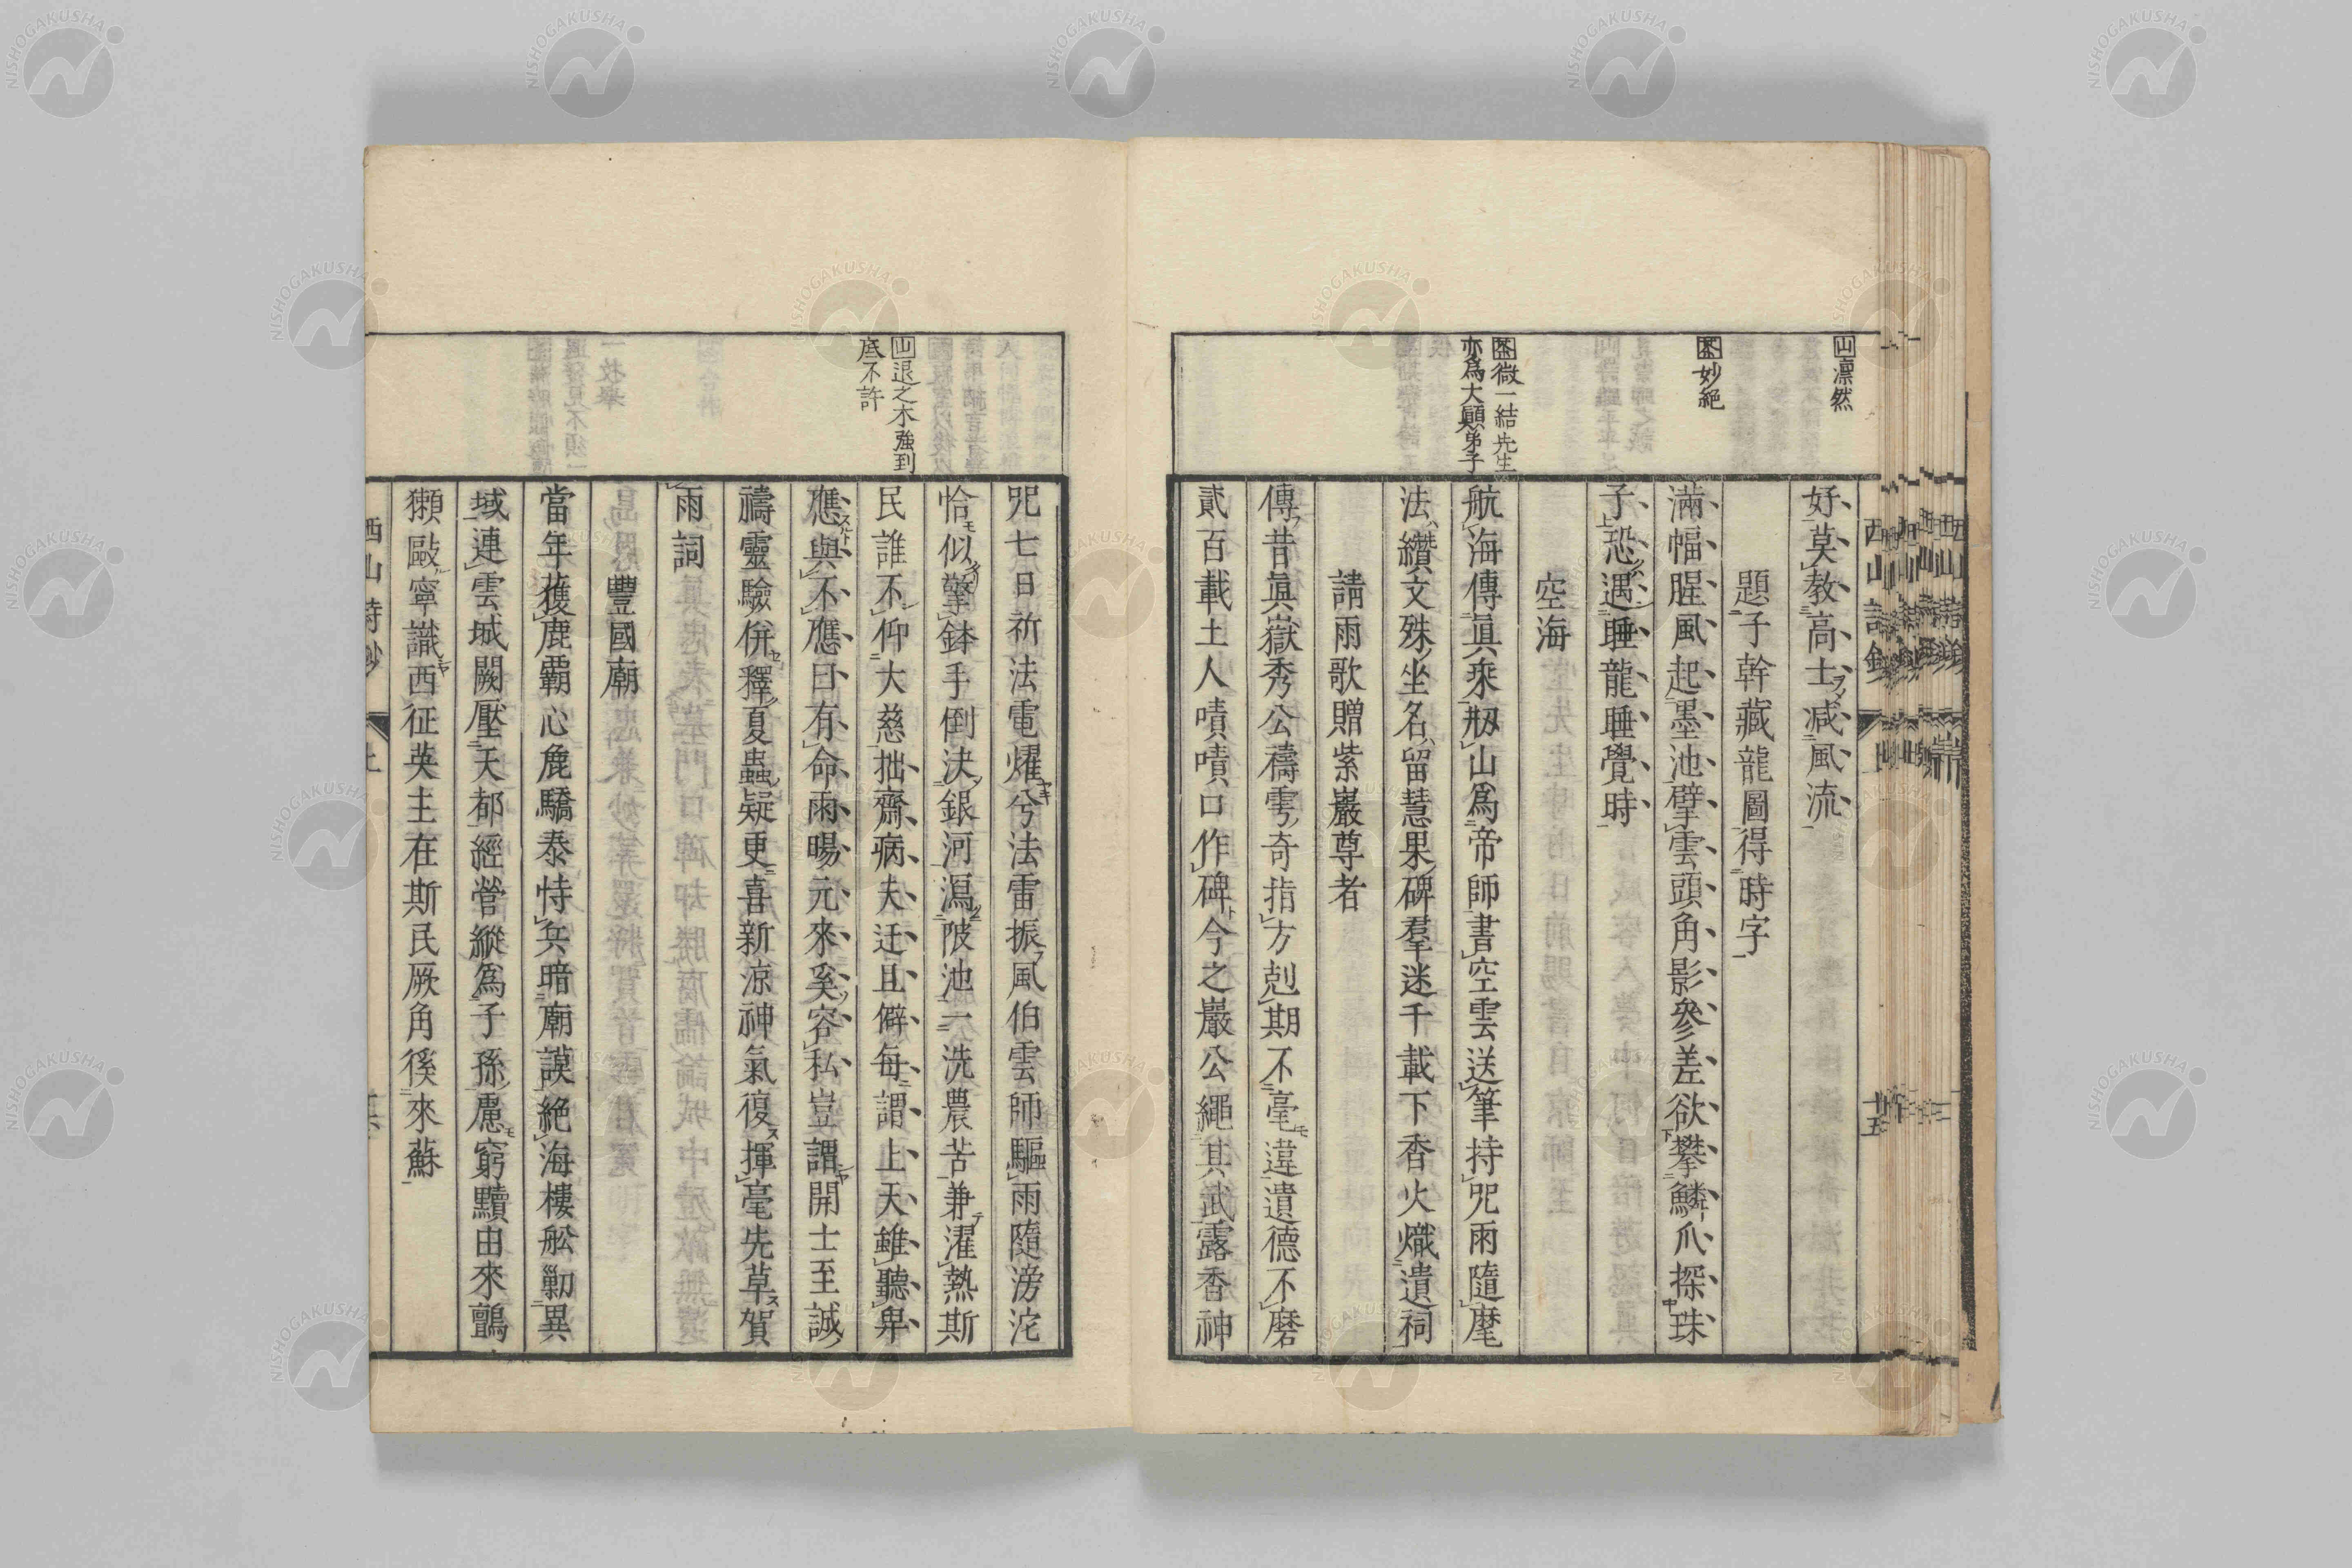 山凛然
𥁕妙絕
𥁕微一結先生
亦爲大顚弟子
好莫教高士減風流
題子幹藏龍圖得時字
滿幅腥風起墨池擘雲頭角影參差欲攀鱗爪探珠
子恐遇睡龍睡覺時
空海
航海傳眞乘刱山爲帝師書空雲送筆持咒雨隨麾
法纘文殊坐名留慧果碑羣迷千載下香火熾遺祠
請雨歌贈紫巖尊者
傳昔眞嶽秀公禱雩奇指方剋期不毫違遺德不磨
貳百載土人嘖嘖口作碑今之巖公繩其武露香神
西山詩鈔
上
十五
山退之木強到
底不許
咒七日祈法電燿兮法雷振風伯雲師驅雨隨滂沱
恰似擎鉢手倒決銀河瀉陂池一洗農苦兼濯熱斯
民誰不仰大慈拙齋病夫迂且僻每謂上天雖聽卑
應與不應曰有命雨暘元來奚容私豈謂開士至誠
禱靈驗併釋夏蟲疑更喜新涼神氣復揮毫先草賀
雨詞
豐國廟
當年獲鹿霸心麁驕泰恃兵暗廟謨絕海樓舩勦異
域連雲城闕壓天都經營縱爲子孫慮窮黷由來鸇
獺敺寧識西征英主在斯民厥角徯來蘇
西山詩鈔
上